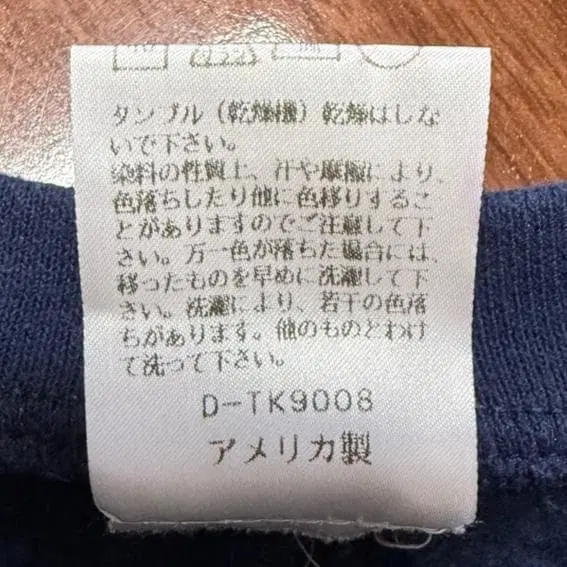 タンブル（乾燥機）乾燥はしな
いで下さい。
染料の性質上、汗や摩擦により、
色落ちしたり他に色移りするこ
とがありますのでご注意して下
さい。万一色が落ちた場合には、
移ったものを早めに洗濯して下
さい。洗濯により、若干の色落
ちがあります。他のものとわけ
て洗って下さい。
D-TK9008
アメリカ製